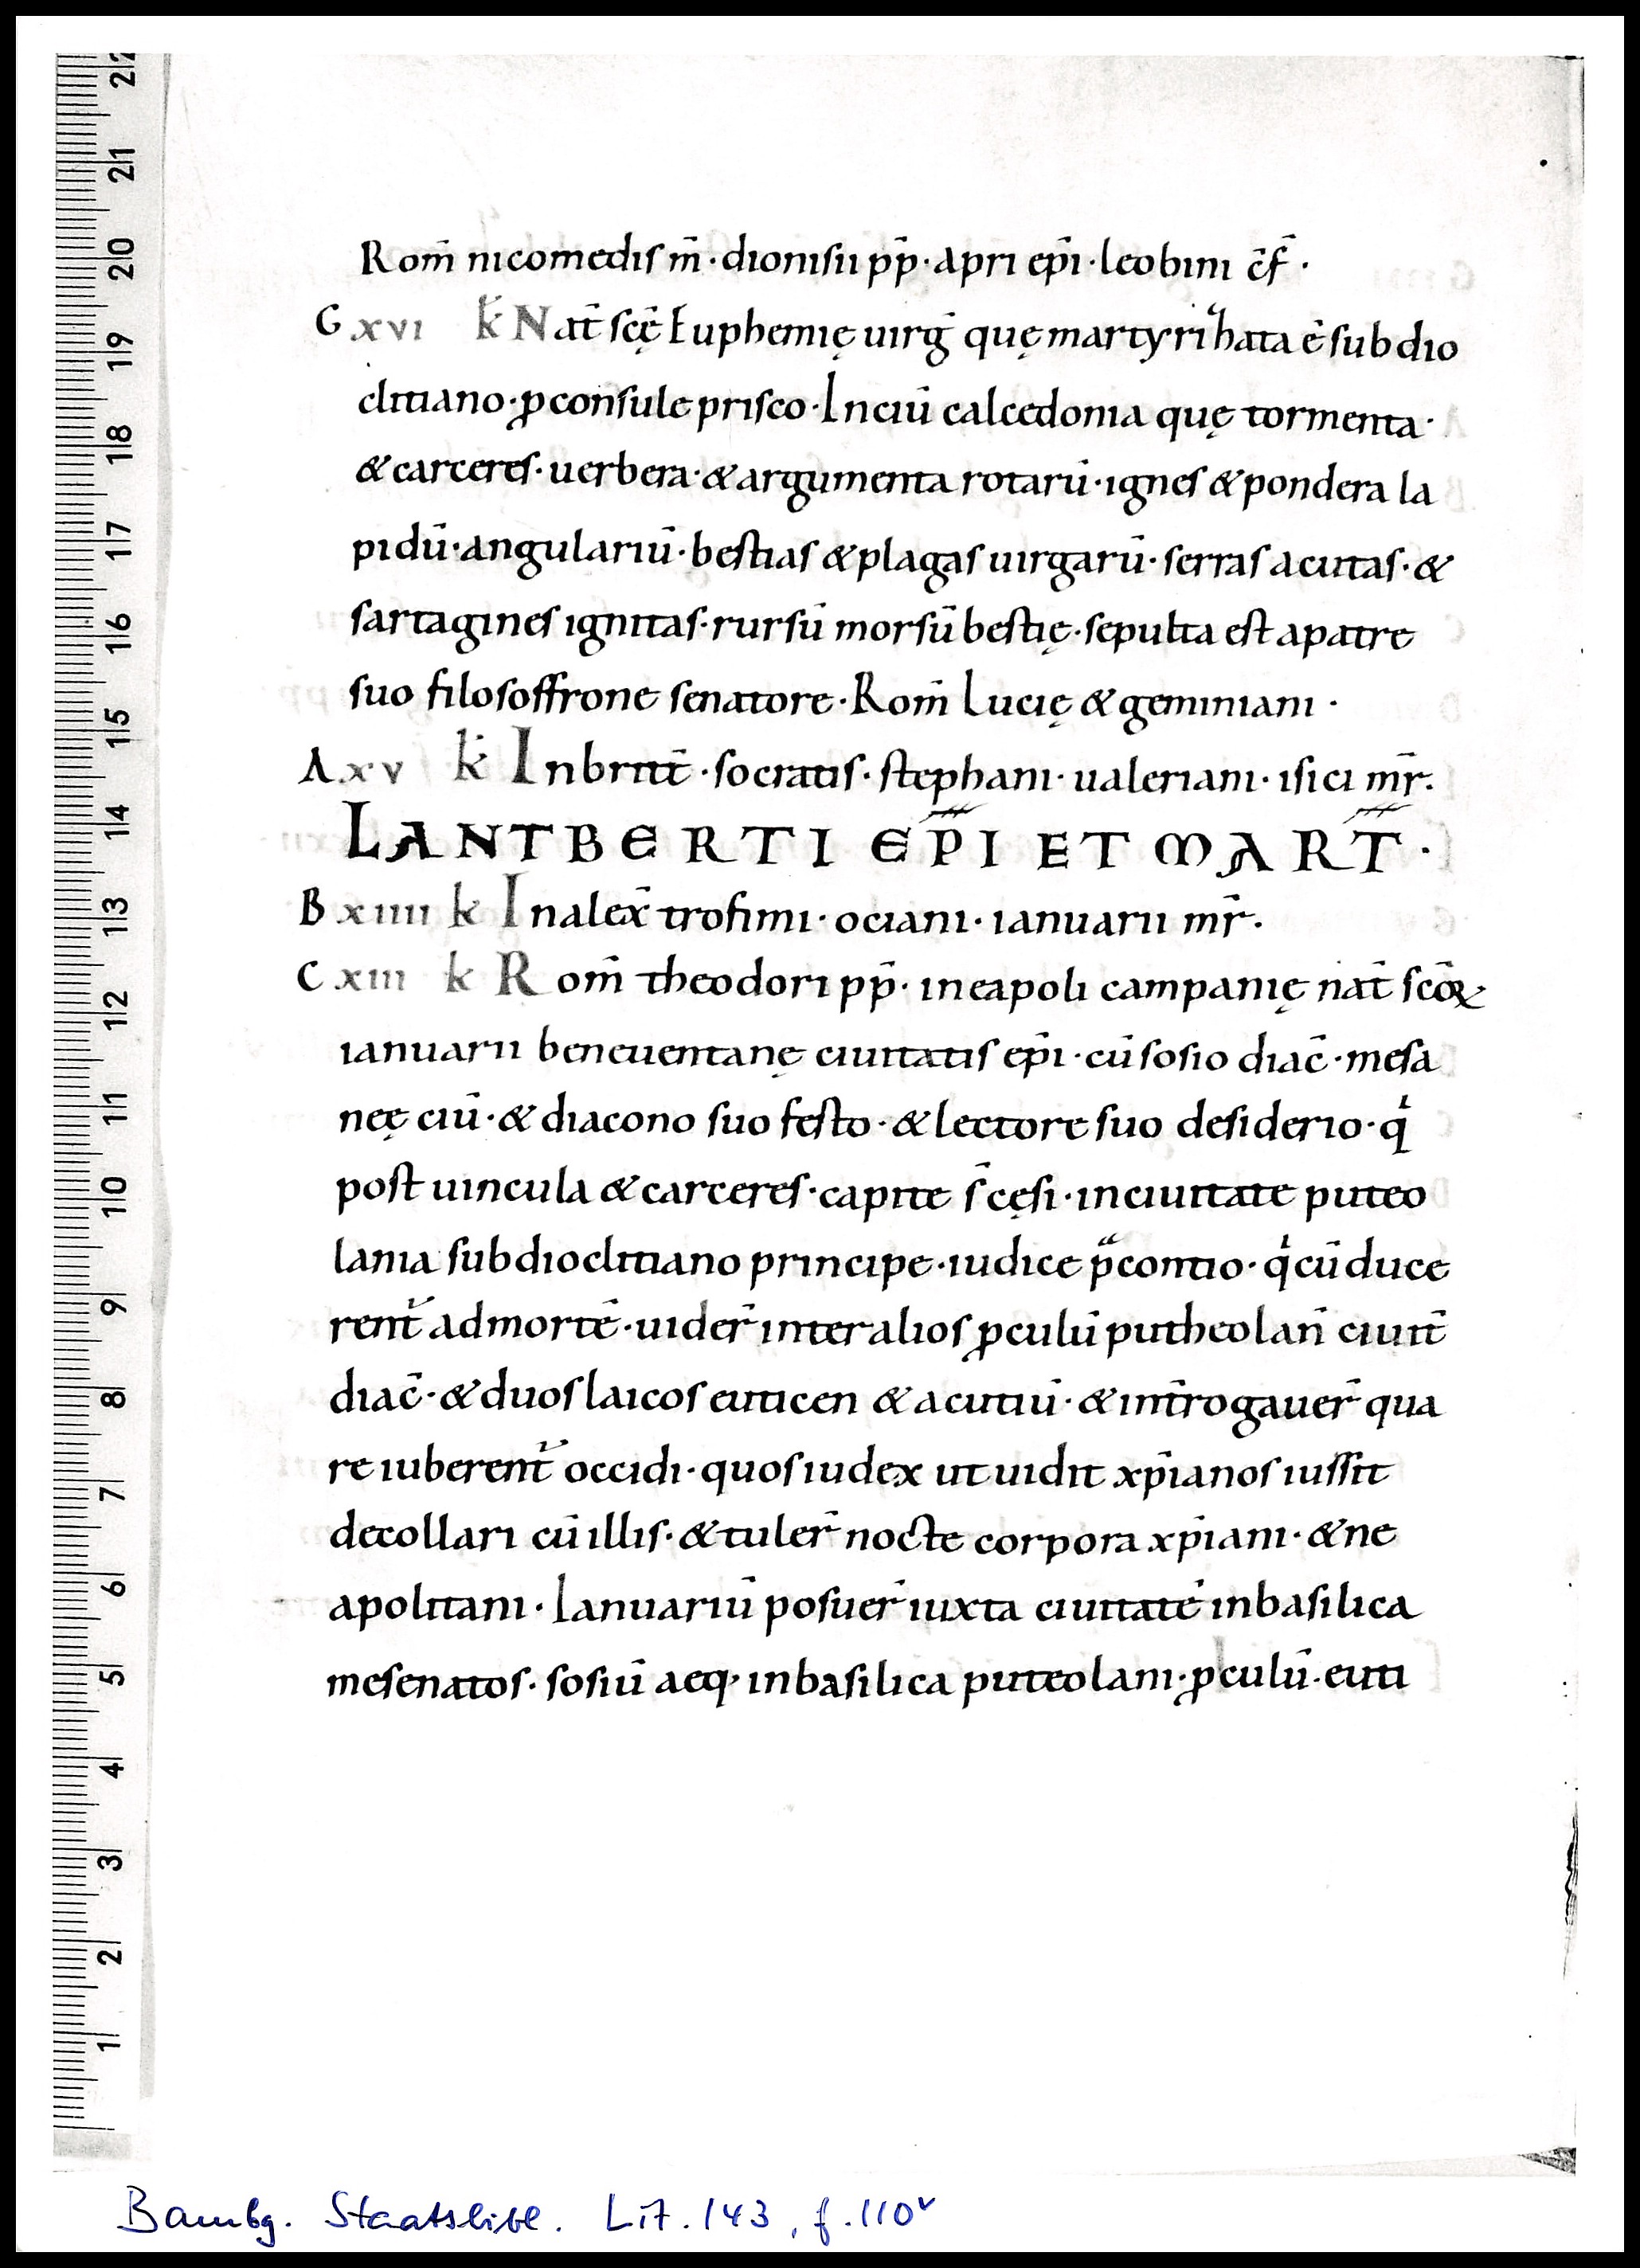 Rom̄ nicomedis m̄ · dionisii pp̄ · apri ep̄i · leobini c̄f ·
G xvi k̄ Nat̄ scę̄ Euphemię uirḡ quę martyrihata ē sub dio
clitiano · ꝓconsule prisco · In ciū calcedonia quę tormenta ·
& carceres · uerbera · & argumenta rotarū · ignes & pondera la
pidū · angulariū · bestias & plagas uirgarū · serras acutas · &
sartagines ignitas · rursū morsū bestię · sepulta est a patre
suo filosoffrone senatore · Rom̄ Lucię & geminiani ·
A xv k̄ In britt̄ · socratis · stephani · ualeriani · isici mr̄ ·
LANTBERTI EP̄I ET MART̄ ·
B xiiii k In alex̄ trofimi · ociani · ianuarii mr̄ ·
C xiii k Rom̄ theodori pp̄ · in eapoli campanię nat̄ scōꝝ
ianuarii beneuentanę ciuitatis ep̄i · cū sosio diac̄ · mesa
neę ciū · & diacono suo festo · & lectore suo desiderio · qͥ
post uincula & carceres · capite s̄ cęsi · in ciuitate puteo
lania sub dioclitiano principe · iudice pͣcontio · qͥ cū duce
rent᷑ ad mortē · uider̄ inter alios ꝓculū putheolan̄ ciuit̄
diac̄ · & duos laicos euticen & acutiū · & int̄rogauer̄ qua
re iuberent᷑ occidi · quos iudex ut uidit xp̄ianos iussit
decollari cū illis · & tuler̄ nocte corpora xp̄iani · & ne
apolitani · Ianuariū posuer̄ iuxta ciuitatē in basilica
mesenatos · sosiū aeq · in basilica puteolani · ꝓculū · euti
22
21
20
19
18
17
16
15
14
13
12
11
10
9
8
7
6
5
4
3
2
1
Bambg. Staatsbibl. Lit. 143, f. 110v